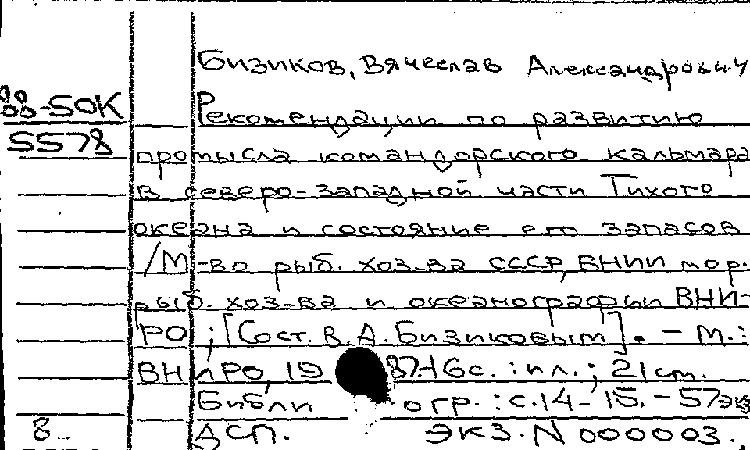 Бизиков, Вячеслав Александрович
88-50К
5578
Рекомендации по развитию
промысла командорского кальмара
в северо-западной части Тихого
океана и состояние его запасов
/М-во рыб. хоз-ва СССР, ВНИИ мор.
рыб. хоз-ва и океанографии ВНИ-
РО ; [Сост. В. А. Бизиковым]. - М. :
ВНИРО, 1987-16 с. : ил. ; 21 см.
Библиогр. : с. 14-15. - 57 экз
8.
ДСП. экз. N 000003.